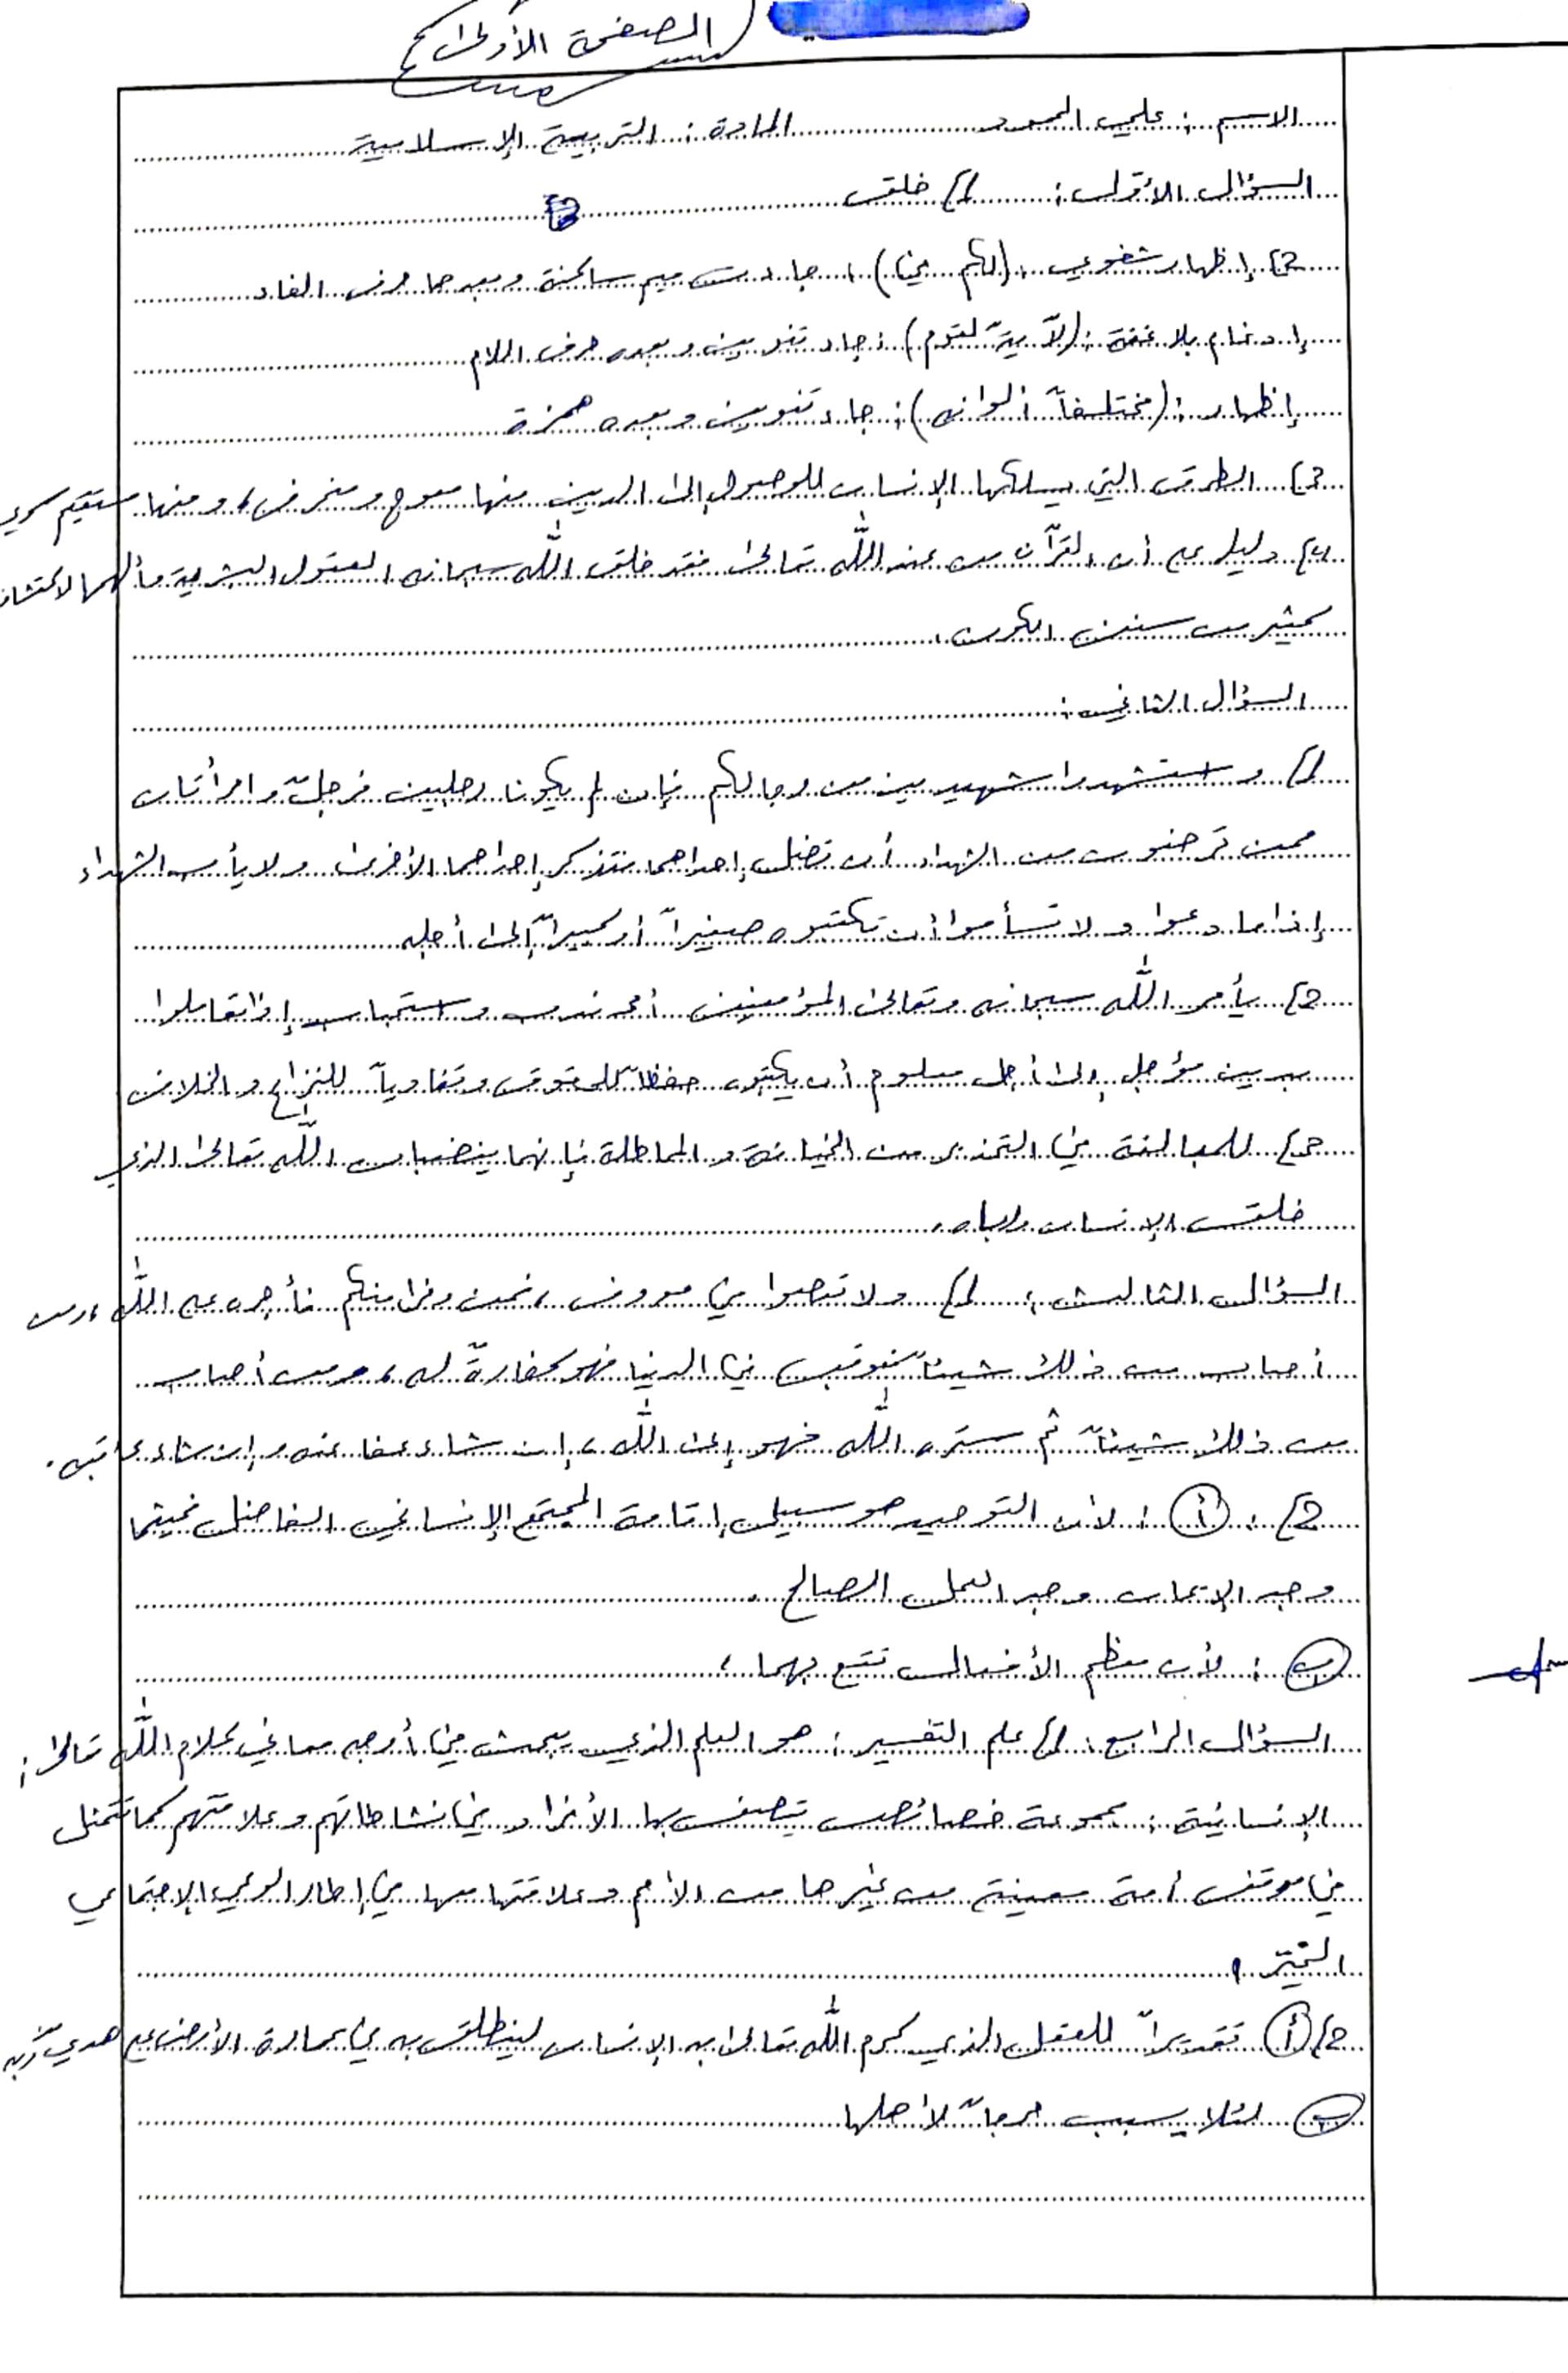 الصفحة الأولى
الاسم : علي المادة : التربية الإسلامية
السؤال الأول : 1) خلق
2) إظهار شفوي : (لكم فيها) : جاءت ميم ساكنة وبعدها حرف الفاء
إدغام بلا غنة : (لآيةً لقوم) : جاء تنوين وبعده حرف اللام
إظهار : (مختلفاً ألوانه) : جاء تنوين وبعده همزة
3) الطرق التي يسلكها الإنسان للوصول إلى الدين منها معوج ومنحرف ، ومنها مستقيم سوي
4) دليل على أن القرآن من عند الله تعالى فقد خلق الله سبحانه العقول البشرية وألهمها لاكتشاف
كثير من سنن الكون .
السؤال الثاني :
1) واستشهدوا شهيدين من رجالكم فإن لم يكونا رجلين فرجلٌ وامرأتان
ممن ترضون من الشهداء أن تضل إحداهما فتذكر إحداهما الأخرى ولا يأب الشهداء
إذا ما دعوا ولا تسأموا أن تكتبوه صغيراً أو كبيراً إلى أجله
2) يأمر الله سبحانه وتعالى المؤمنين أمر ندب واستحباب إذا تعاملوا
بدين مؤجل إلى أجل معلوم أن يكتبوه حفظاً للحقوق وتفادياً للنزاع والخلاف
3) للمبالغة في التحذير من الخيانة والمماطلة فإنهما يغضبان الله تعالى الذي
خلق الإنسان ورباه .
السؤال الثالث : 1) ولا تعصوا في معروف ، فمن وفى منكم فأجره على الله ، ومن
أصاب من ذلك شيئاً فعوقب في الدنيا فهو كفارةٌ له ، ومن أصاب
من ذلك شيئاً ثم ستره الله فهو إلى الله ، إن شاء عفا عنه وإن شاء عاقبه .
2) : أ : لأن التوحيد هو سبيل إقامة المجتمع الإنساني الفاضل فحيثما
وجد الإيمان وجد العمل الصالح .
ب : لأن معظم الأفعال تقع بهما .
السؤال الرابع : 1) علم التفسير : هو العلم الذي يبحث في أوجه معاني كلام الله تعالى :
الإنسانية : مجموعة خصائص يتصف بها الأفراد في نشاطاتهم وعلاقتهم كما تتمثل
في موقف أمة معينة من غيرها من الأمم وعلاقتها معها في إطار الوعي الاجتماعي
الخيّر .
2) أ تقديراً للعقل الذي كرم الله تعالى به الإنسان لينطلق به في عمارة الأرض على هدي ربه
ب لئلا يسبب حرجاً لأهلها